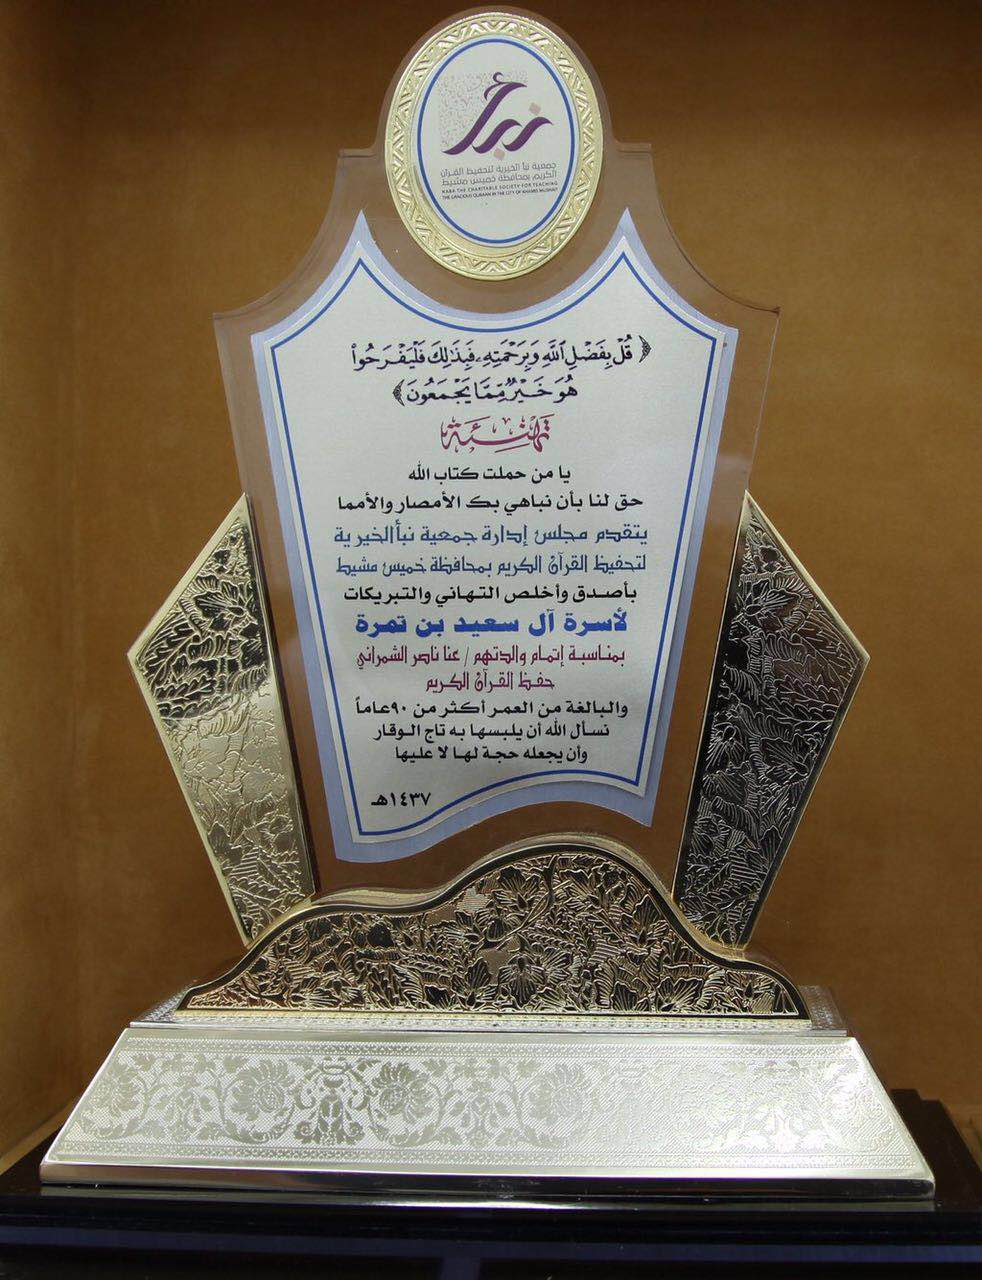 نبأ
جمعية نبأ الخيرية لتحفيظ القرآن
الكريم بمحافظة خميس مشيط
NABA THE CHARITABLE SOCIETY FOR TEACHING
THE GRACIOUS QURAAN IN THE CITY OF KHAMIS MUSHAIT
﴿ قُلْ بِفَضْلِ ٱللَّهِ وَبِرَحْمَتِهِۦ فَبِذَٰلِكَ فَلْيَفْرَحُوا۟
هُوَ خَيْرٌ مِّمَّا يَجْمَعُونَ ﴾
تهنئة
يا من حملت كتاب الله
حق لنا بأن نباهي بك الأمصار والأمما
يتقدم مجلس إدارة جمعية نبأ الخيرية
لتحفيظ القرآن الكريم بمحافظة خميس مشيط
بأصدق وأخلص التهاني والتبريكات
لأسرة آل سعيد بن تمرة
بمناسبة إتمام والدتهم / عنا ناصر الشمراني
حفظ القرآن الكريم
والبالغة من العمر أكثر من ٩٠ عاماً
نسأل الله أن يلبسها به تاج الوقار
وأن يجعله حجة لها لا عليها
١٤٣٧هـ